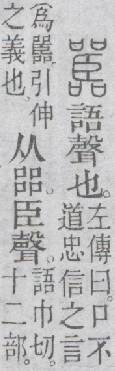 嚚 語聲也。
左傳曰。口不
道忠信之言
爲嚚。引伸
之義也。
从㗊。臣聲。
語巾切。
十二部。